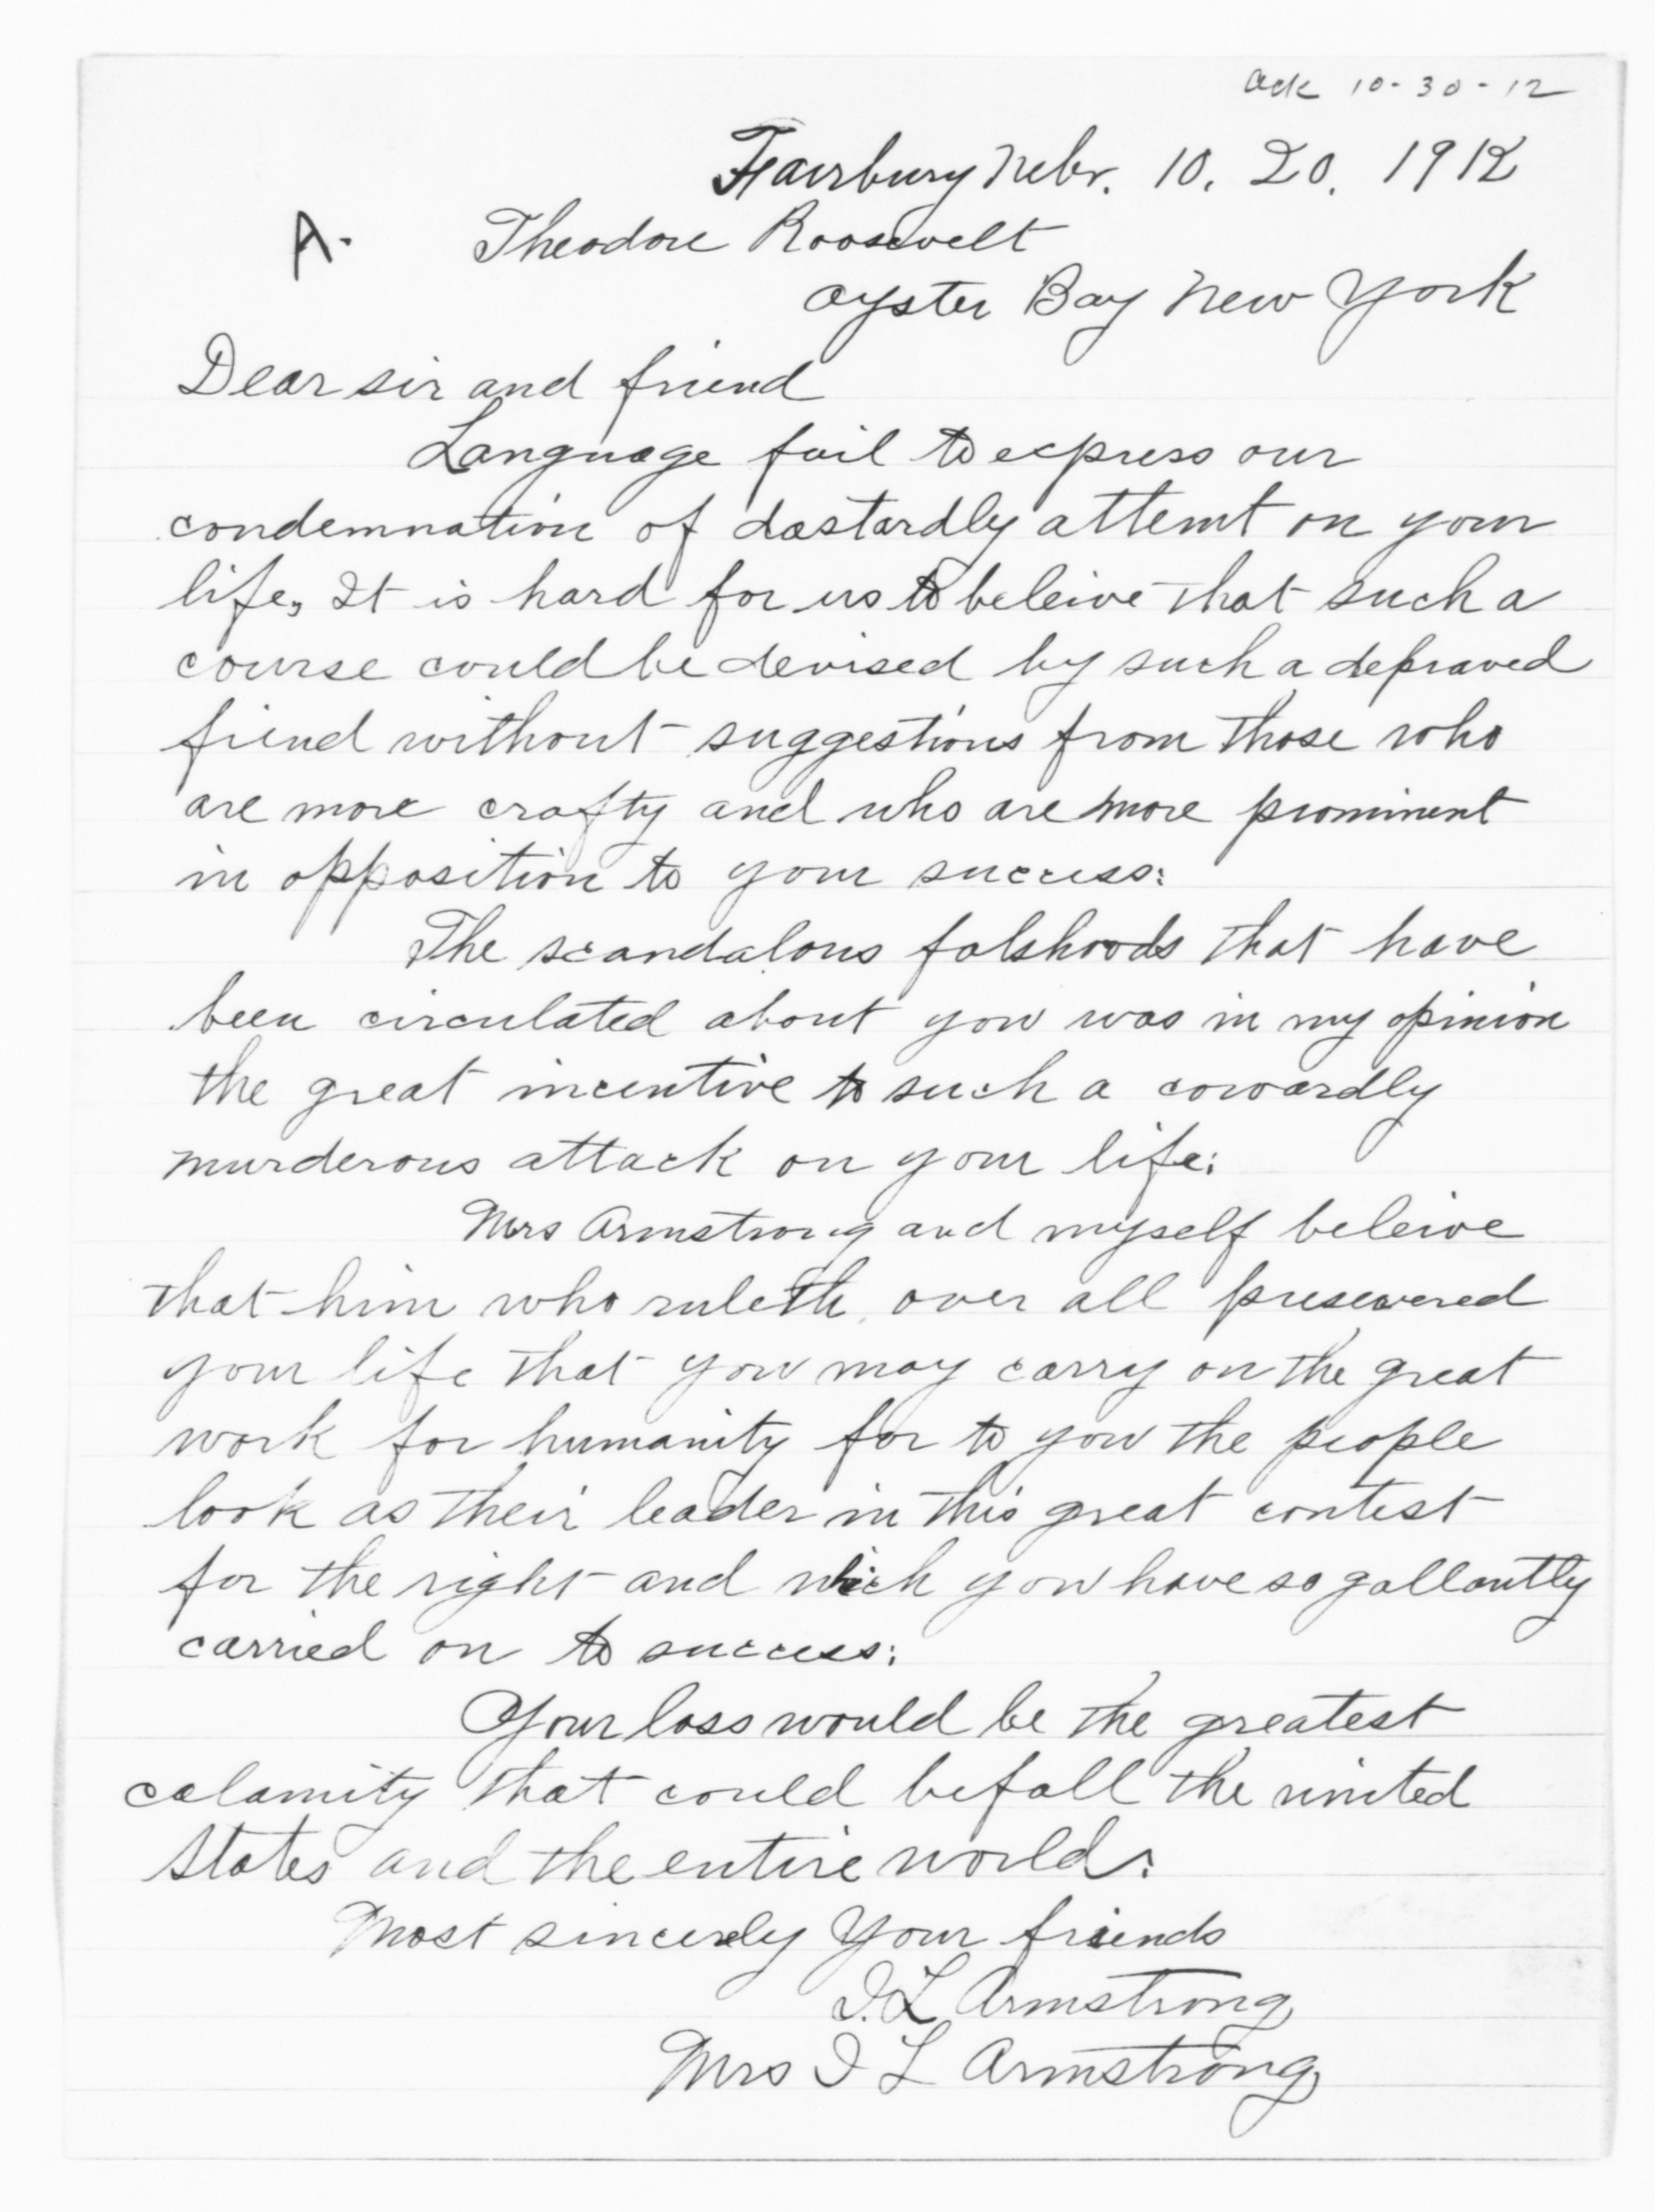 ack 10-30-12
Fairbury Nebr. 10. 20. 1912
A. Theodore Roosevelt
Oyster Bay New York
Dear sir and friend
Language fail to express our
condemnation of dastardly attemt on your
life, It is hard for us to beleive that such a
course could be devised by such a depraved
fiend without suggestions from those who
are more crafty and who are more prominent
in opposition to your success:
The scandalous falshoods that have
been circulated about you was in my opinion
the great incentive to such a cowardly
murderous attack on your life:
Mrs Armstrong and myself beleive
that him who ruleth over all preservered
your life that you may carry on the great
work for humanity for to you the people
look as their leader in this great contest
for the right and which you have so gallantly
carried on to success:
Your loss would be the greatest
calamity that could befall the united
States and the entire world:
Most sincerely Your friends
I.L Armstrong
Mrs I L Armstrong